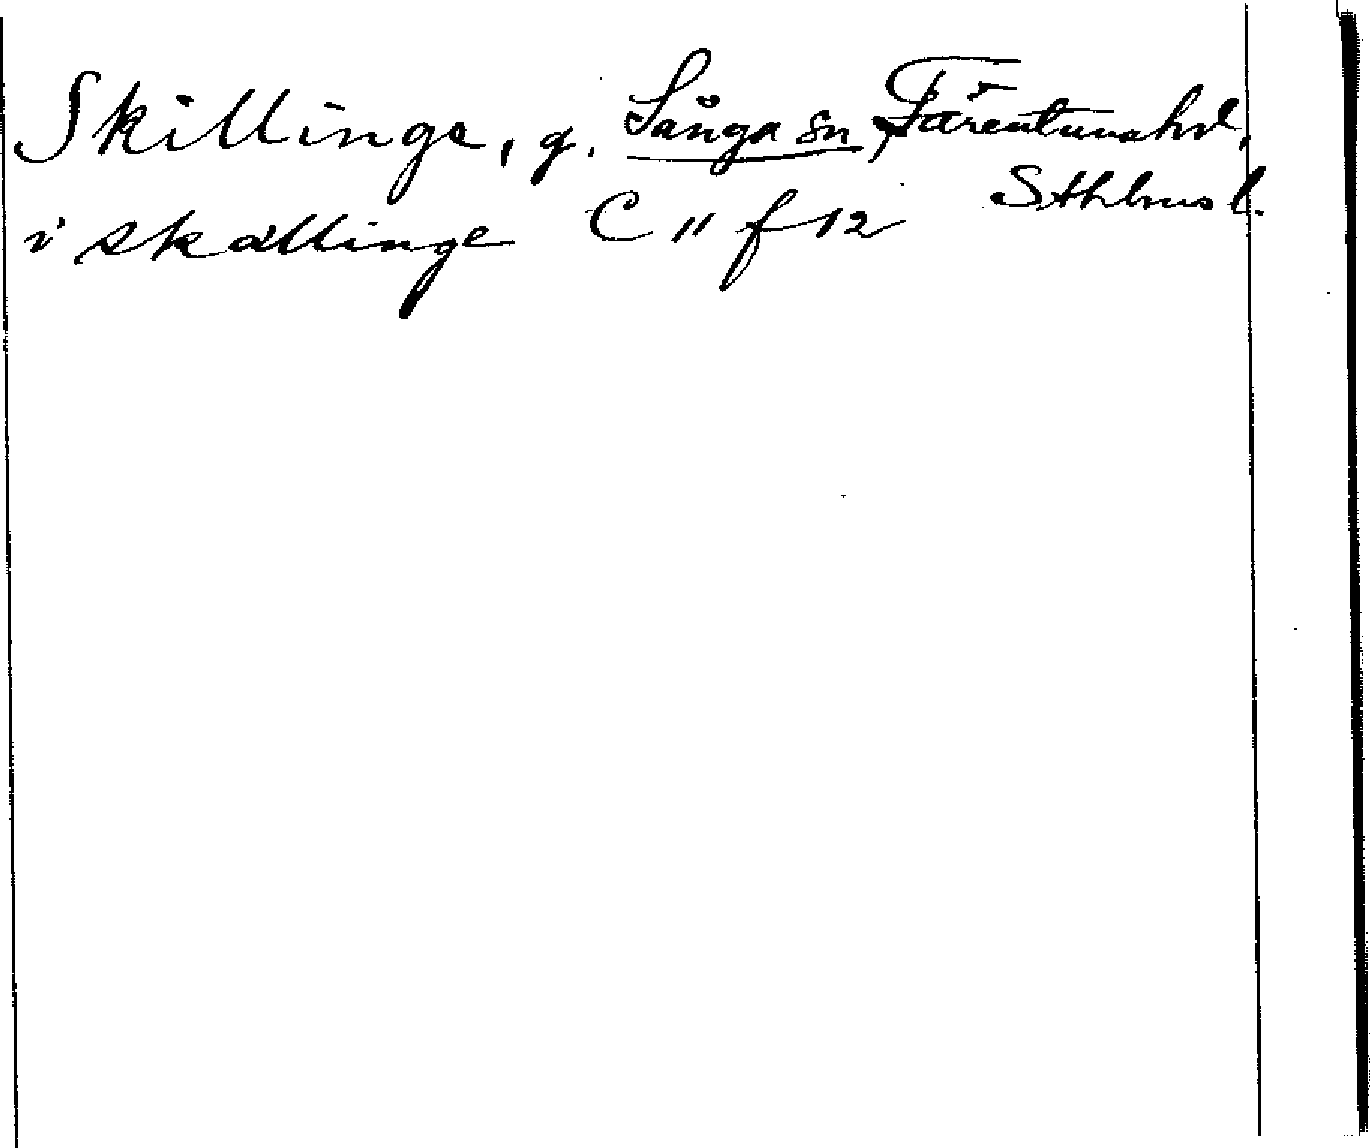 Skillinge, g. Sånga sn, Färentuna hd,
Sthlms l.
i skællinge C 11 f 12